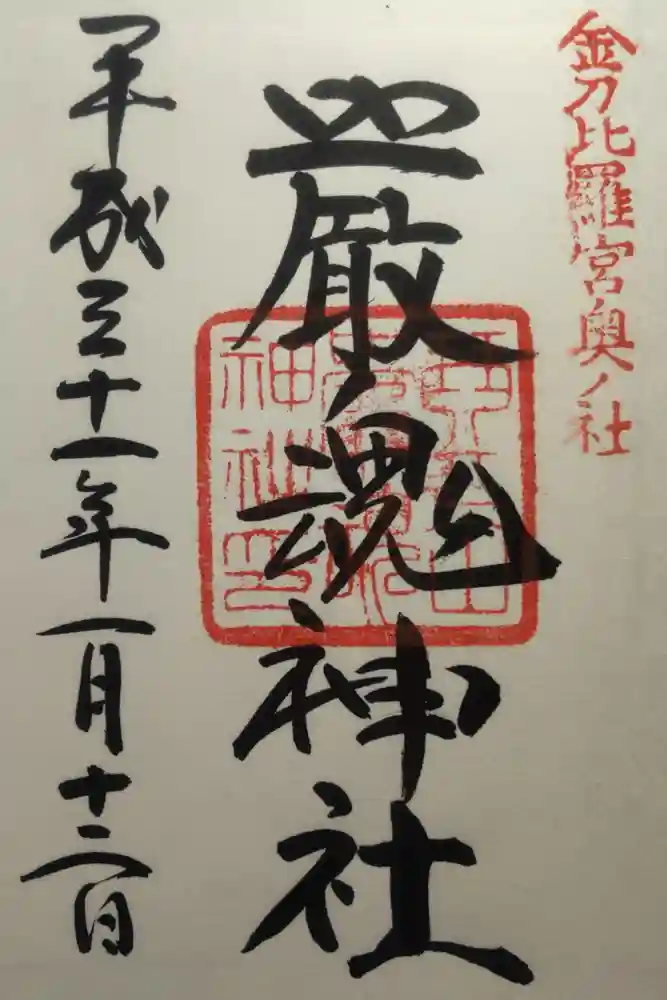 金刀比羅宮奥ノ社
嚴魂神社
平成三十一年一月十二日